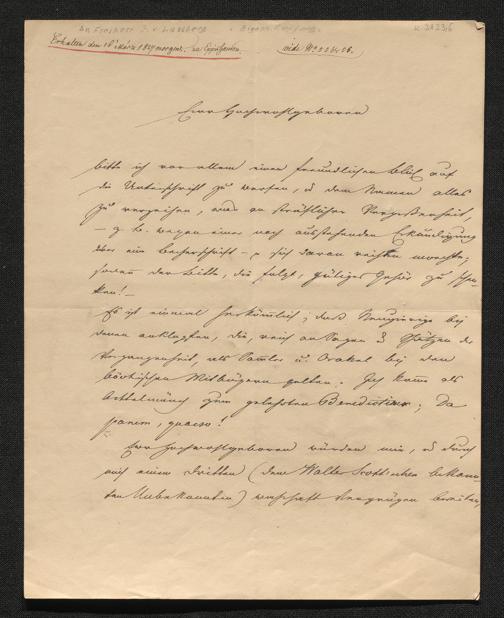 An Freiherr J. v. Lassberg
K 2A23,6
Erhalten den 16 März 18 morgens. zu Eppishausen.
vide No
Euer Hochwohlgeboren
bitte ich vor allem einen freundlichen Blick auf
die Unterschrift zu werfen, u dem Namen alles
zu verzeihen, was an sträflicher Vergeßenheit,
– z. b. wegen einer noch ausstehenden Erkundigung
über ein Becherschrift – sich daran reihen mochte;
sodann der Bitte, die folgt, gütiges Gehör zu schen-
ken! –
Es ist einmal herkömmlich, daß Neugierige bei
denen anklopfen, die, reich an Sagen u Schätzen der
Vergangenheit, als Samler u. Orakel bei den
Mitbürgern gelten. Ich kome als
Bettelmönch zum gelehrten Benedictiner; Da
panem, quaeso!
Euer Hochwohlgeboren würden mir, u durch
mich einem Dritten (dem Walter Scott'schen bekann-
ten Unbekannten) wahrhaft Vergnügen bereiten,